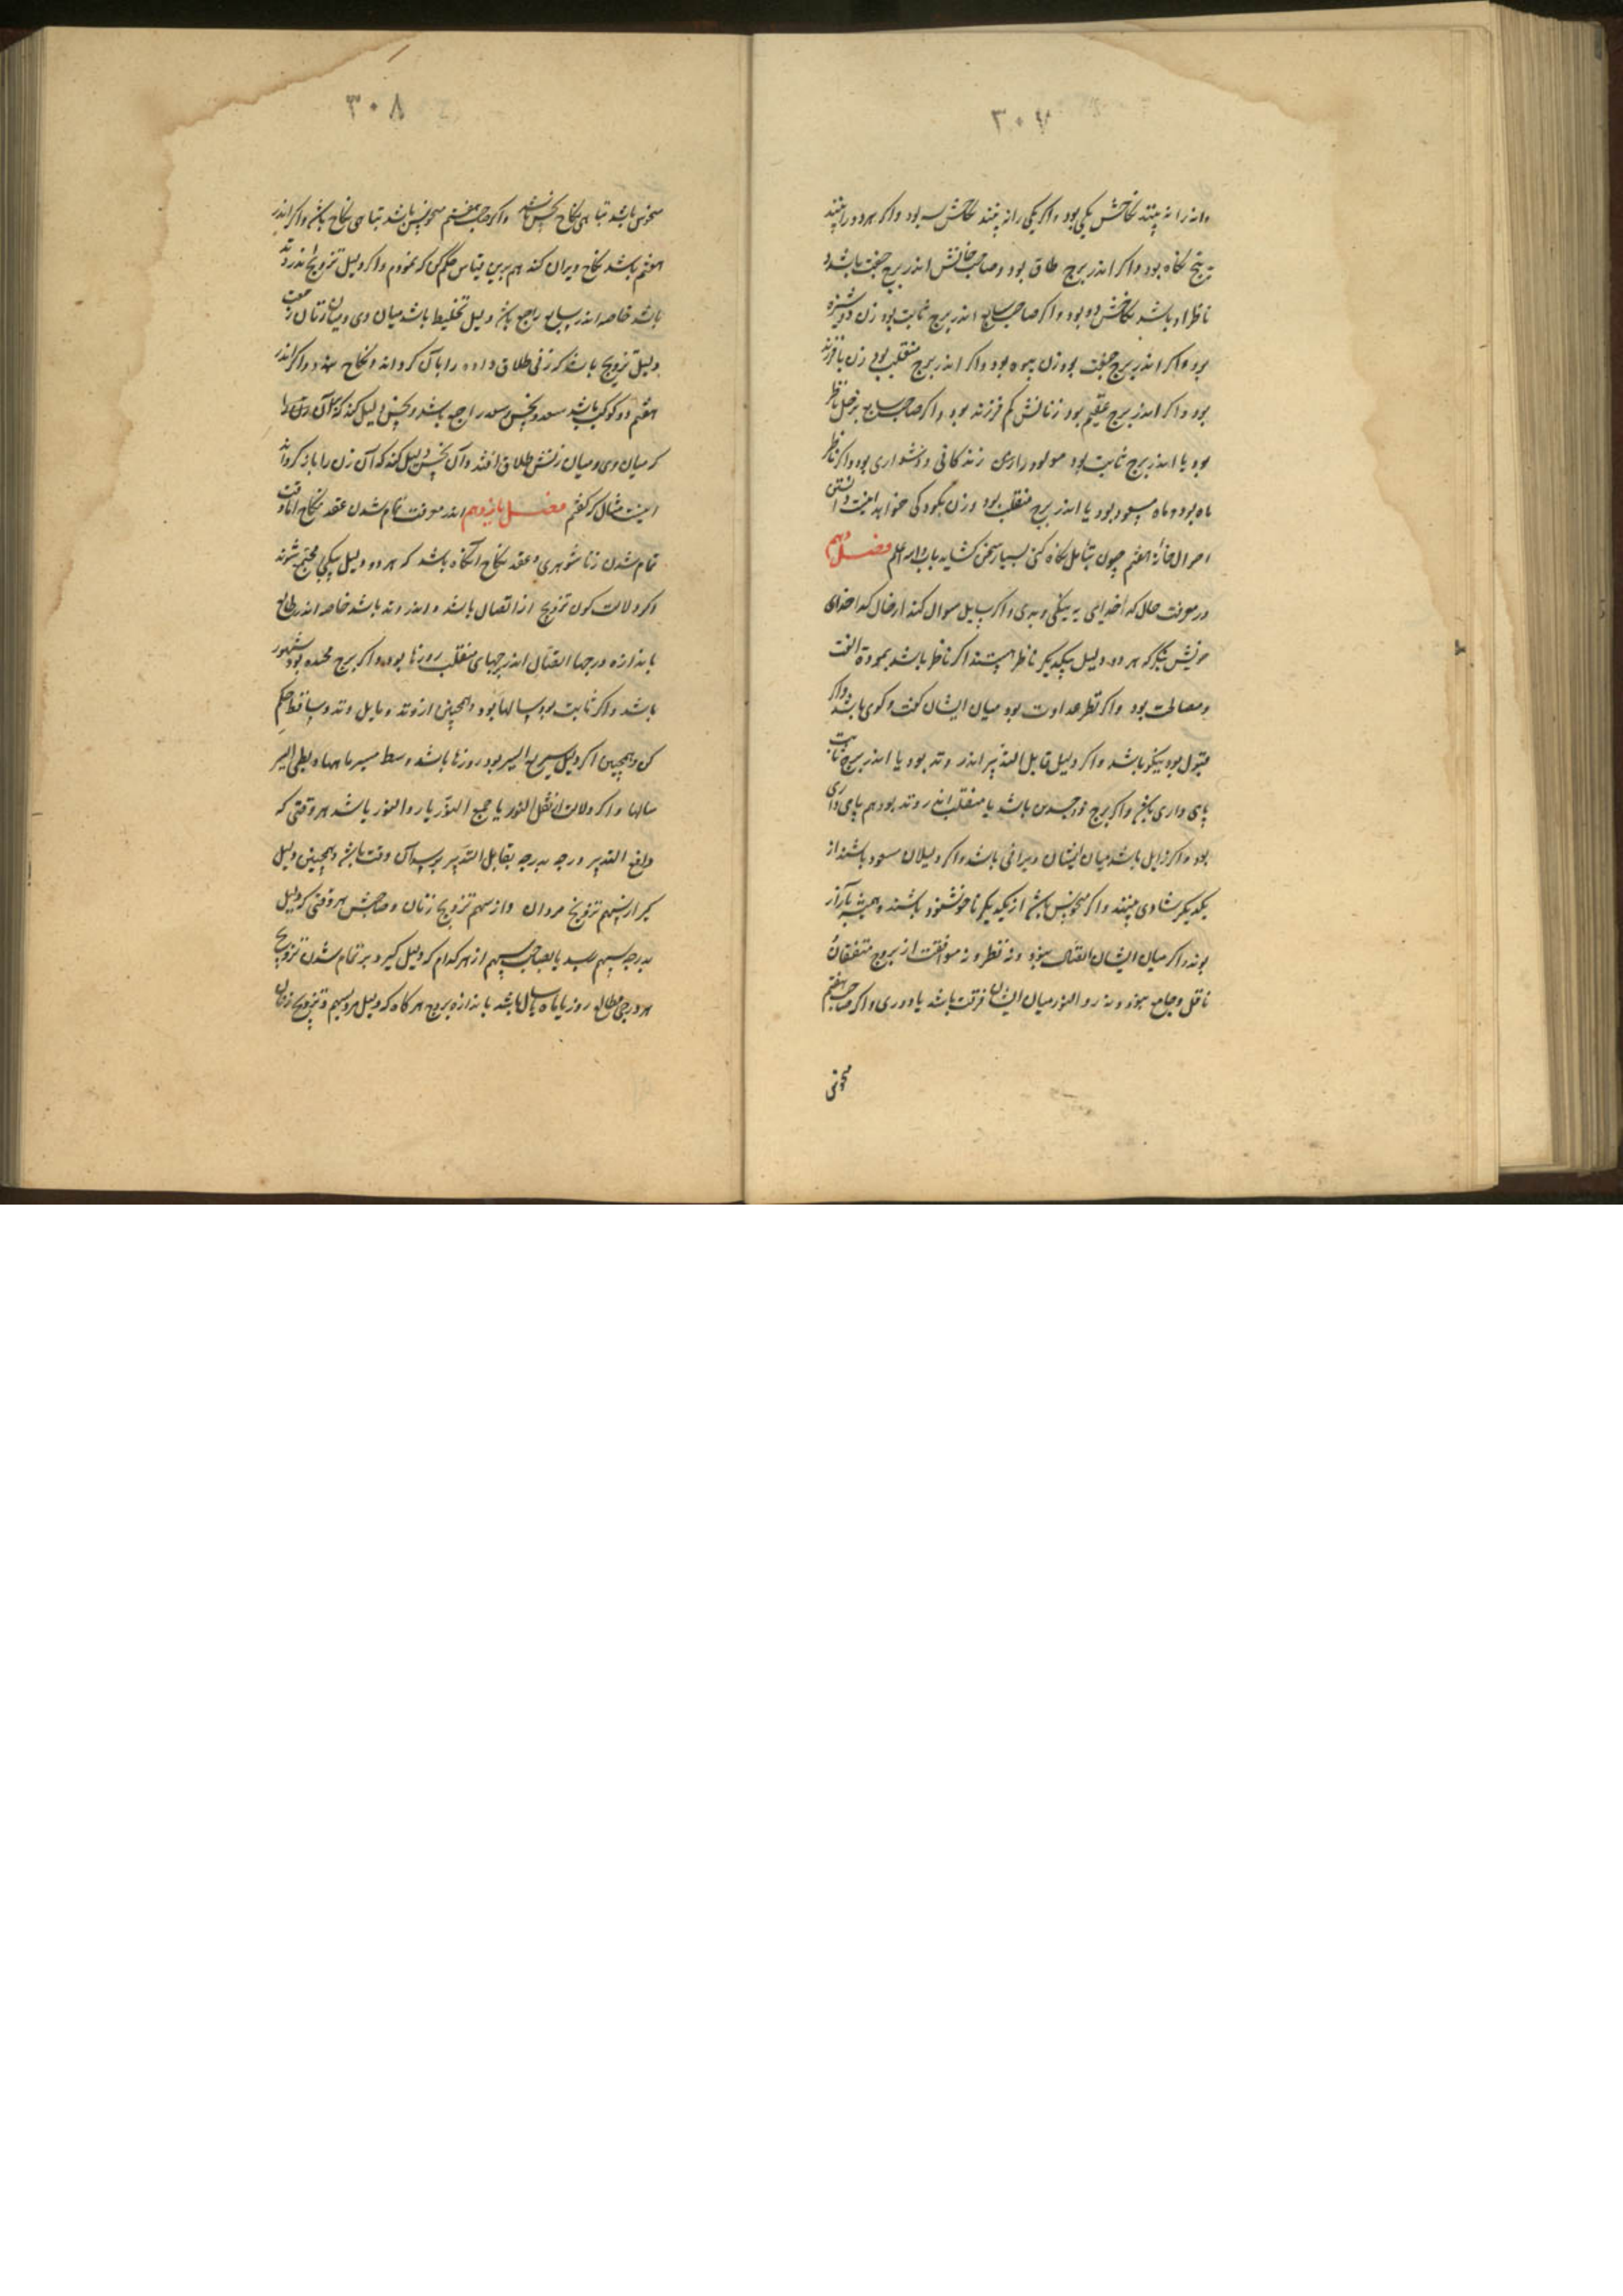 ۳۰۷
وانه را نه بینند نکاحش یکی بود واکر یکی را نه بینند نکاحش سه بود واکر هر دو را بینند
پنج نکاه بود واکر اندر برج طاق بود وصاحب خانش اندر برج جفت باشد و
ناظر او باشد نکاحش دو بود واکر صاحب سابع اندر برج ثابت بود زن دوشیزه
برد واکر اندر برج جفت بود زن بیوه بود واکر اندر برج منقلب بود زن با فرزند
بود واکر اندر برج عقیم بود زنانش کم فرزند بود واکر صاحب سابع بزحل ناظر
بود یا اندر برج ثابت بود مولود را زن زندکانی ودشواری بود واکر ناظر
ماه بود وماه مسعود بود یا اندر برج منقلب بود وزن بکودکی خواهد اینست دانستن
احوال خانهٔ هفتم چون بتأمل نکاه کنی بسیار سخن کشاید باب والله اعلم فصل دهم
در معرفت حال کدخدایی به نیکی وبدی واکر سایل سوال کند از حال کدخدای
خویش بنکر که هر دو دلیل بیکدیکر ناظر هستند اکر ناظر باشد بمودة الفت
ومصالحت بود واکر نظر عداوت بود میان ایشان کفت وکوی باشد واکر
قبول بود نیکو باشد واکر دلیل قابل التدبیر اندر وتد بود یا اندر برج ثابت
پای داری باشد واکر برج ذوجسدین باشد یا منقلب اندر وتد بود هم پای داری
بود واکر زایل باشد میان ایشان ویرانی باشد واکر دلیلان مسعود باشند از
یکدیکر شادی بینند واکر منحوس باشد از یکدیکر ناخوشنود باشند وهمیشه بآزار
بوند واکر میان ایشان اتصال نبود ونه نظر ونه موافقت از بروج متفقان
ناقل وجامع نبود ونه رد النور میان ایشان فرقت باشد یا دوری واکر صاحب هفتم
منحوس
۳۰۸
منحوس باشد تباهی نکاح باشد واکر صاحب هفتم منحوس باشد تباهی نکاح باشد واکر اندر
هفتم باشد نکاح ویران کند هم برین قیاس حکم کن که نمودم واکر دلیل تزویج اندر وتد
باشد خاصه اندر سابع راجع باشد دلیل تخلیط باشد میان وی ومیان زنان
دلیل تزویج باشد که زنی طلاق داده را باز کرداند ونکاح بندد واکر اندر
هفتم دو کوکب باشد سعد ونحس وسعد راجع باشد ونحس دلیل کند که آن زن را
که میان وی ومیان زنش طلاق افتد وآن نحس دلیل کند که آن زن را باز کرداند
اینست مثال که کفتم فصل یازدهم اندر معرفت تمام شدن عقد نکاح اما وقت
تمام شدن زناشوهری وعقد نکاح آنکاه باشد که هر دو دلیل بیکی مجتمع شوند
اکر دلالت کون تزویج از اتصال باشد واندر وتد باشد خاصه اندر طالع
باندازه درجها اتصال اندر برجهای منقلب روزها بود واکر برج مجسده بود شهور
باشد واکر ثابت بود سالها بود وهمچنین از وتد ومایل وتد وساقط حکم
کن وهمچنین اکر دلیل سریع السیر بود روزها باشد وسط مسیر ماهها وبطی السیر
سالها واکر دلالت از نقل النور یا جمع النور یا رد النور باشد هر وقتی که
دافع التدبیر درجه بدرجه بقابل التدبیر برسد آن وقت باشد وهمچنین دلیل
کیر از سهم تزویج مردان واز سهم تزویج زنان وصاحبش هر وقتی که دلیل
بدرجه سهم رسد یا بصاحب سهم از هر کدام که دلیل کیرد بر تمام شدن تزویج
هر درجی مطالع روز یا ماه یا سال باشد باندازه بروج هر کاه که دلیل هر دو سهم تزویج زنان